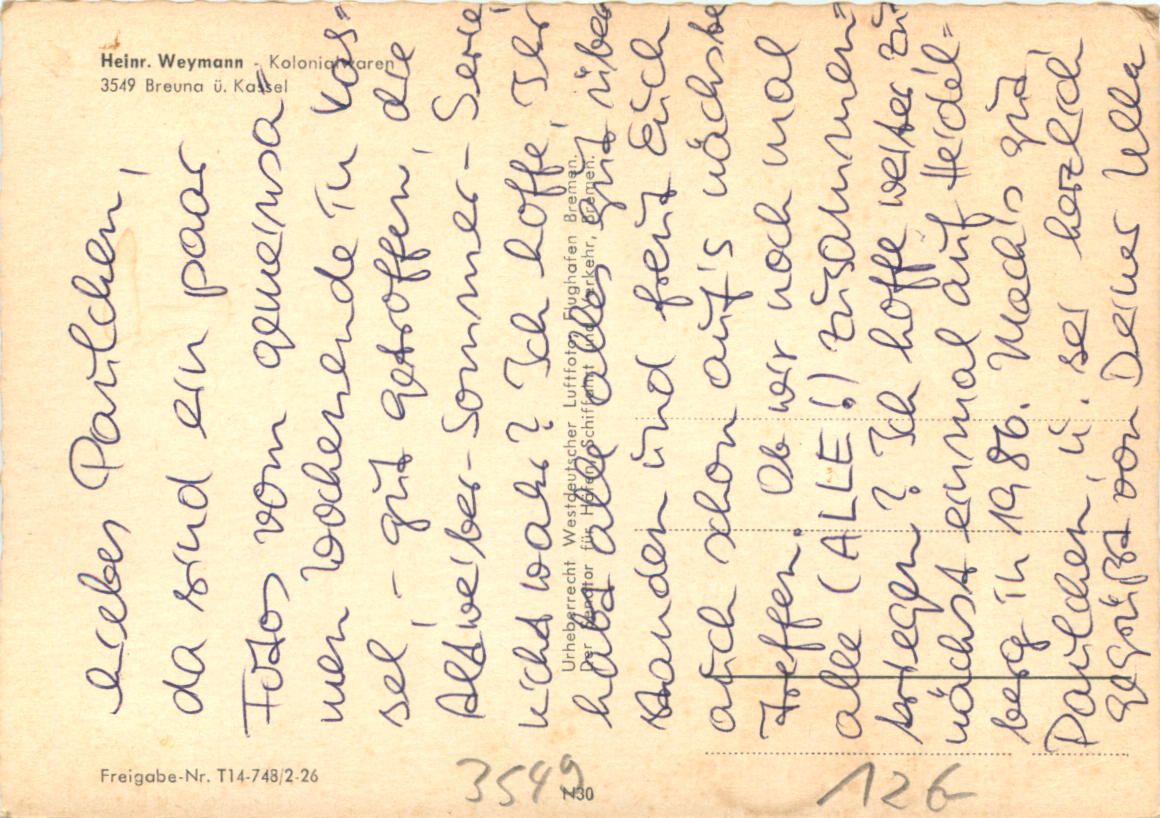 Heinr. Weymann - Kolonialwaren
3549 Breuna ü. Kassel
Liebes Paulchen,
da sind ein paar
Fotos vom gemeinsa=
men Wochenende in Kas=
sel - gut getroffen, die
Altweiber-Sommer-Serie
nicht wahr? Ich hoffe, Ihr
habt alle alles gut über
standen und freut Euch
auch schon auf's nächste
Treffen. Ob wir noch mal
alle (ALLE!) zusammen=
kriegen? Ich hoffe weiter zu=
nächst einmal auf Heidel=
berg in 1986. Mach's gut
Paulchen, u. sei herzlich
gegrüßt von Deiner Ulla
Urheberrecht Westdeutscher Luftfoto, Flughafen Bremen.
Der Senator für Häfen, Schiffahrt und Verkehr, Bremen.
Freigabe-Nr. T14-748/2-26
3549
N30
126